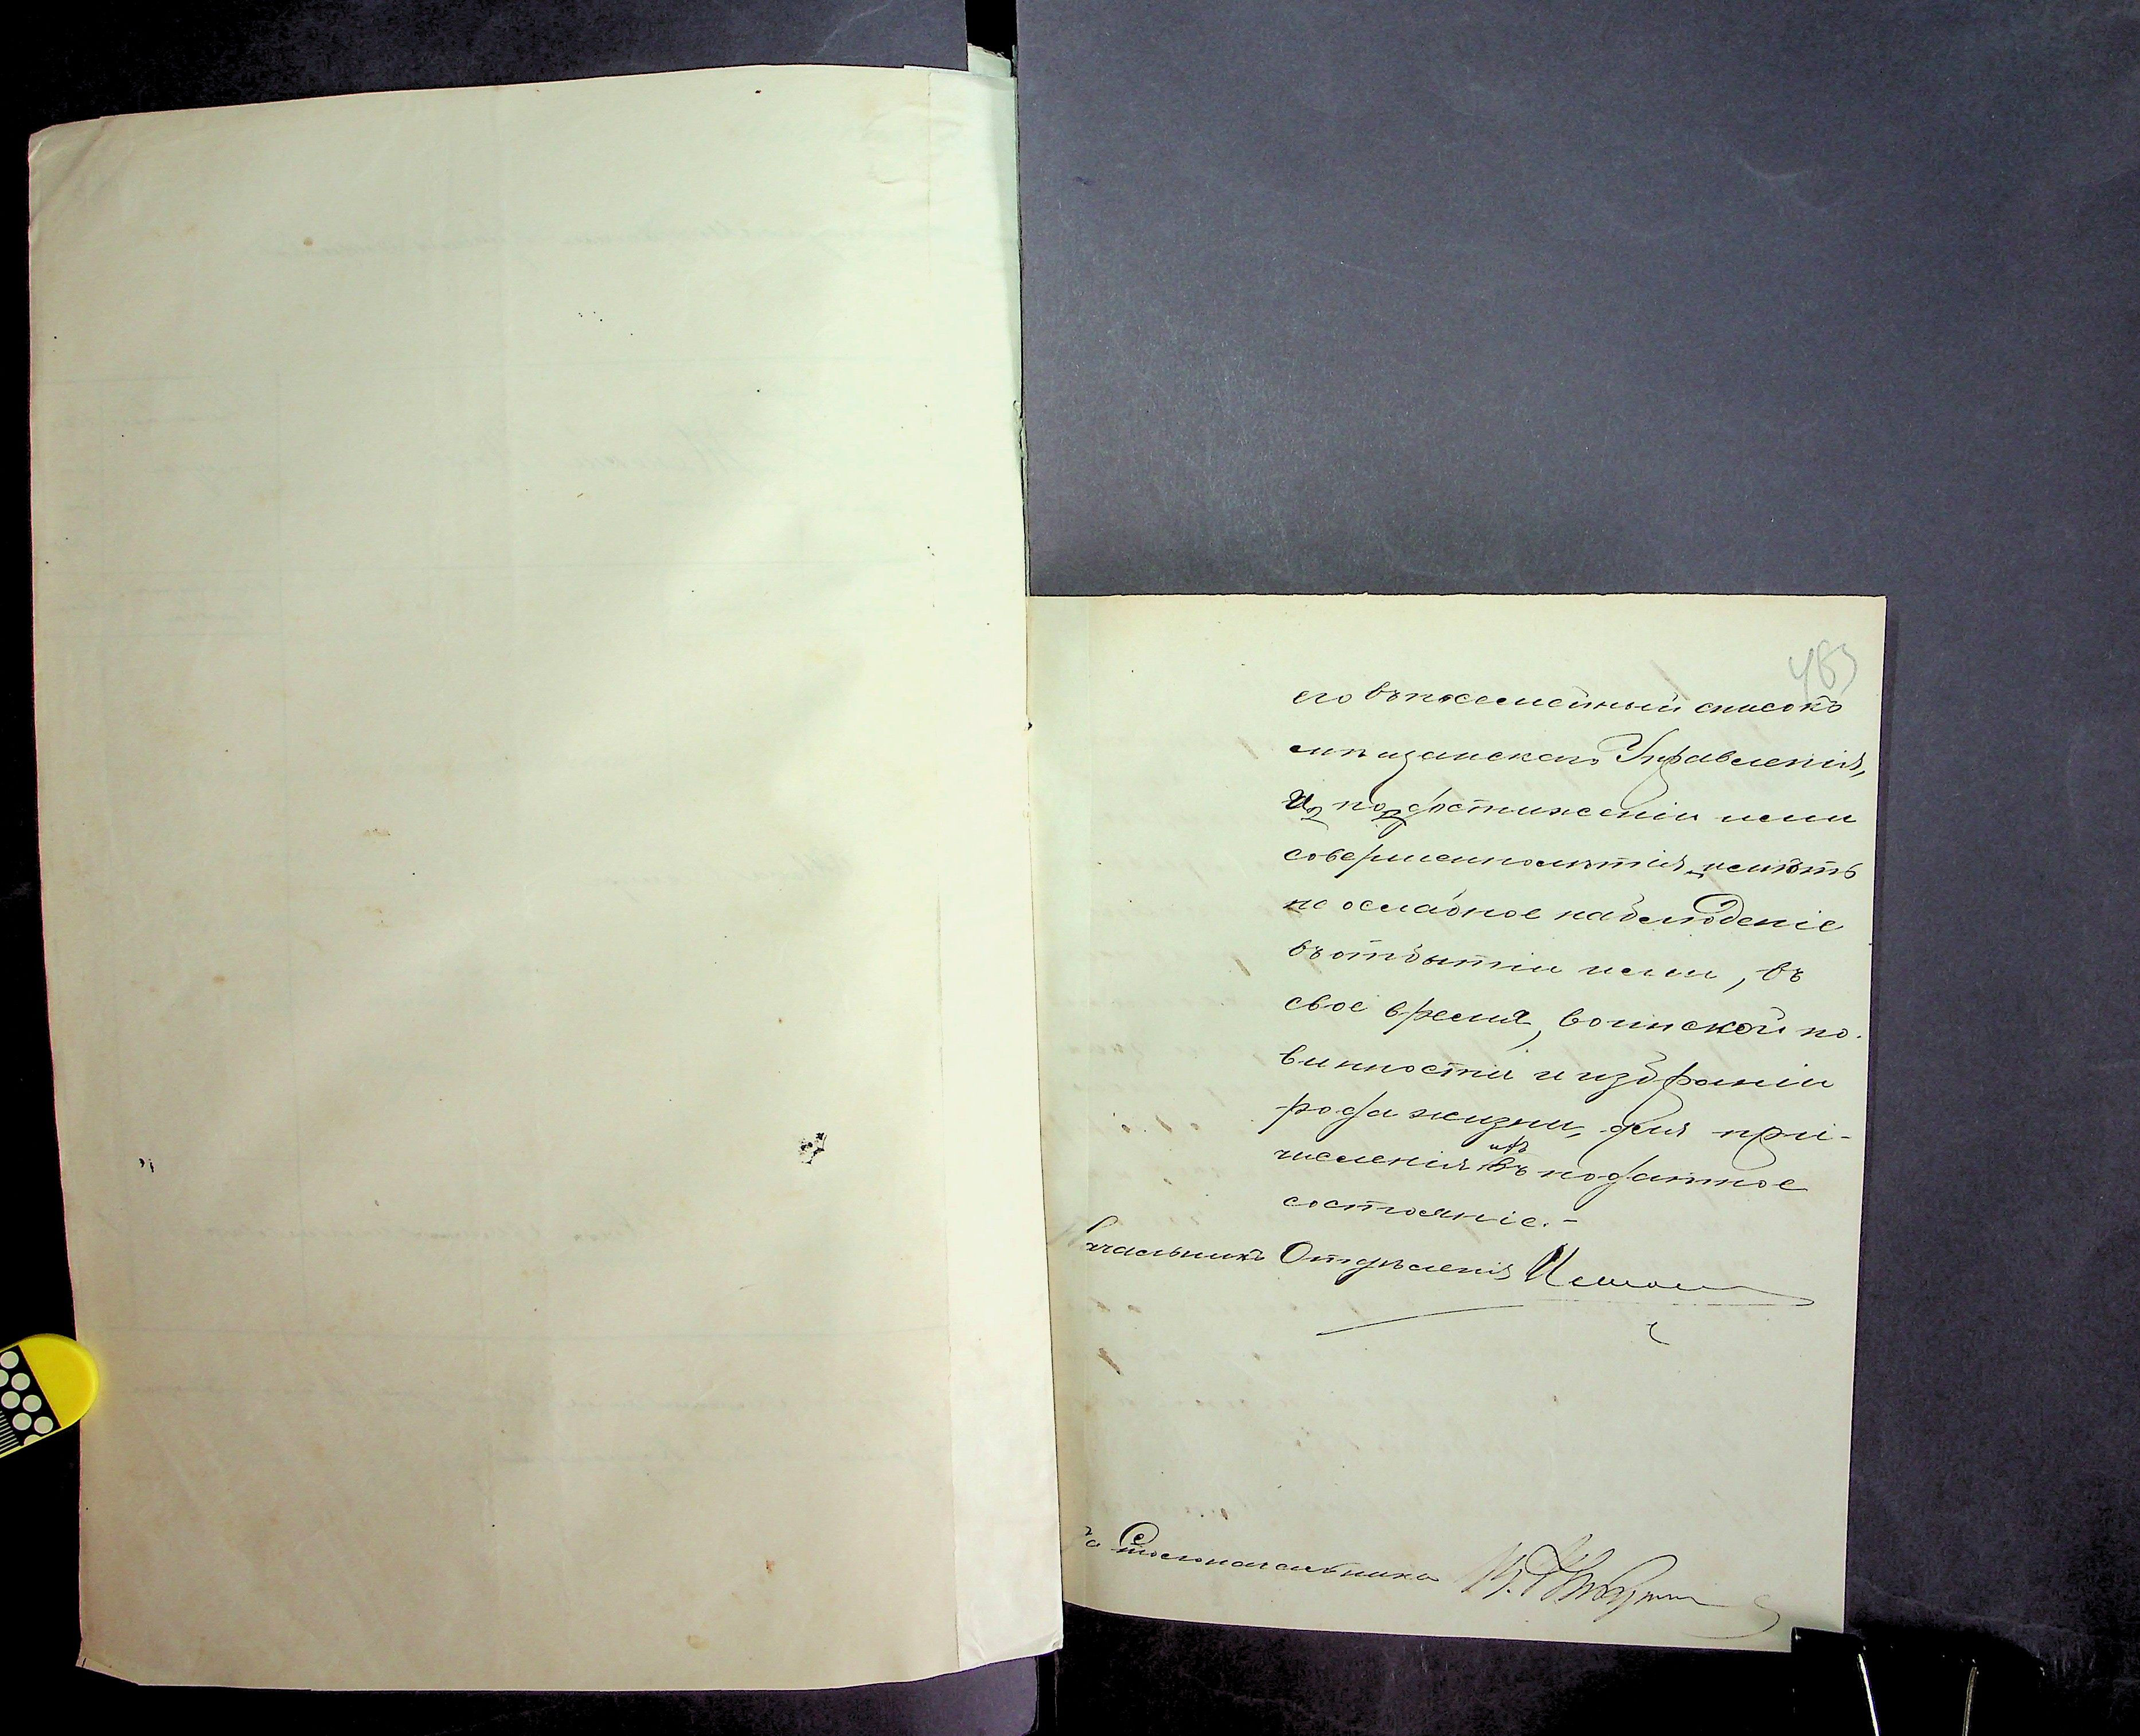 463
его въ посемейный списокъ
мѣщанскаго Управленія,
и, по достиженіи ими
совершеннолѣтія, имѣть
не ослабное наблюденіе
въ отбытіи ими, въ
свое время, воинской по-
винности и избраніи
рода жизни, для при-
численія ихъ въ податное
состояніе.-
Начальникъ Отдѣленія
За Столоначальника